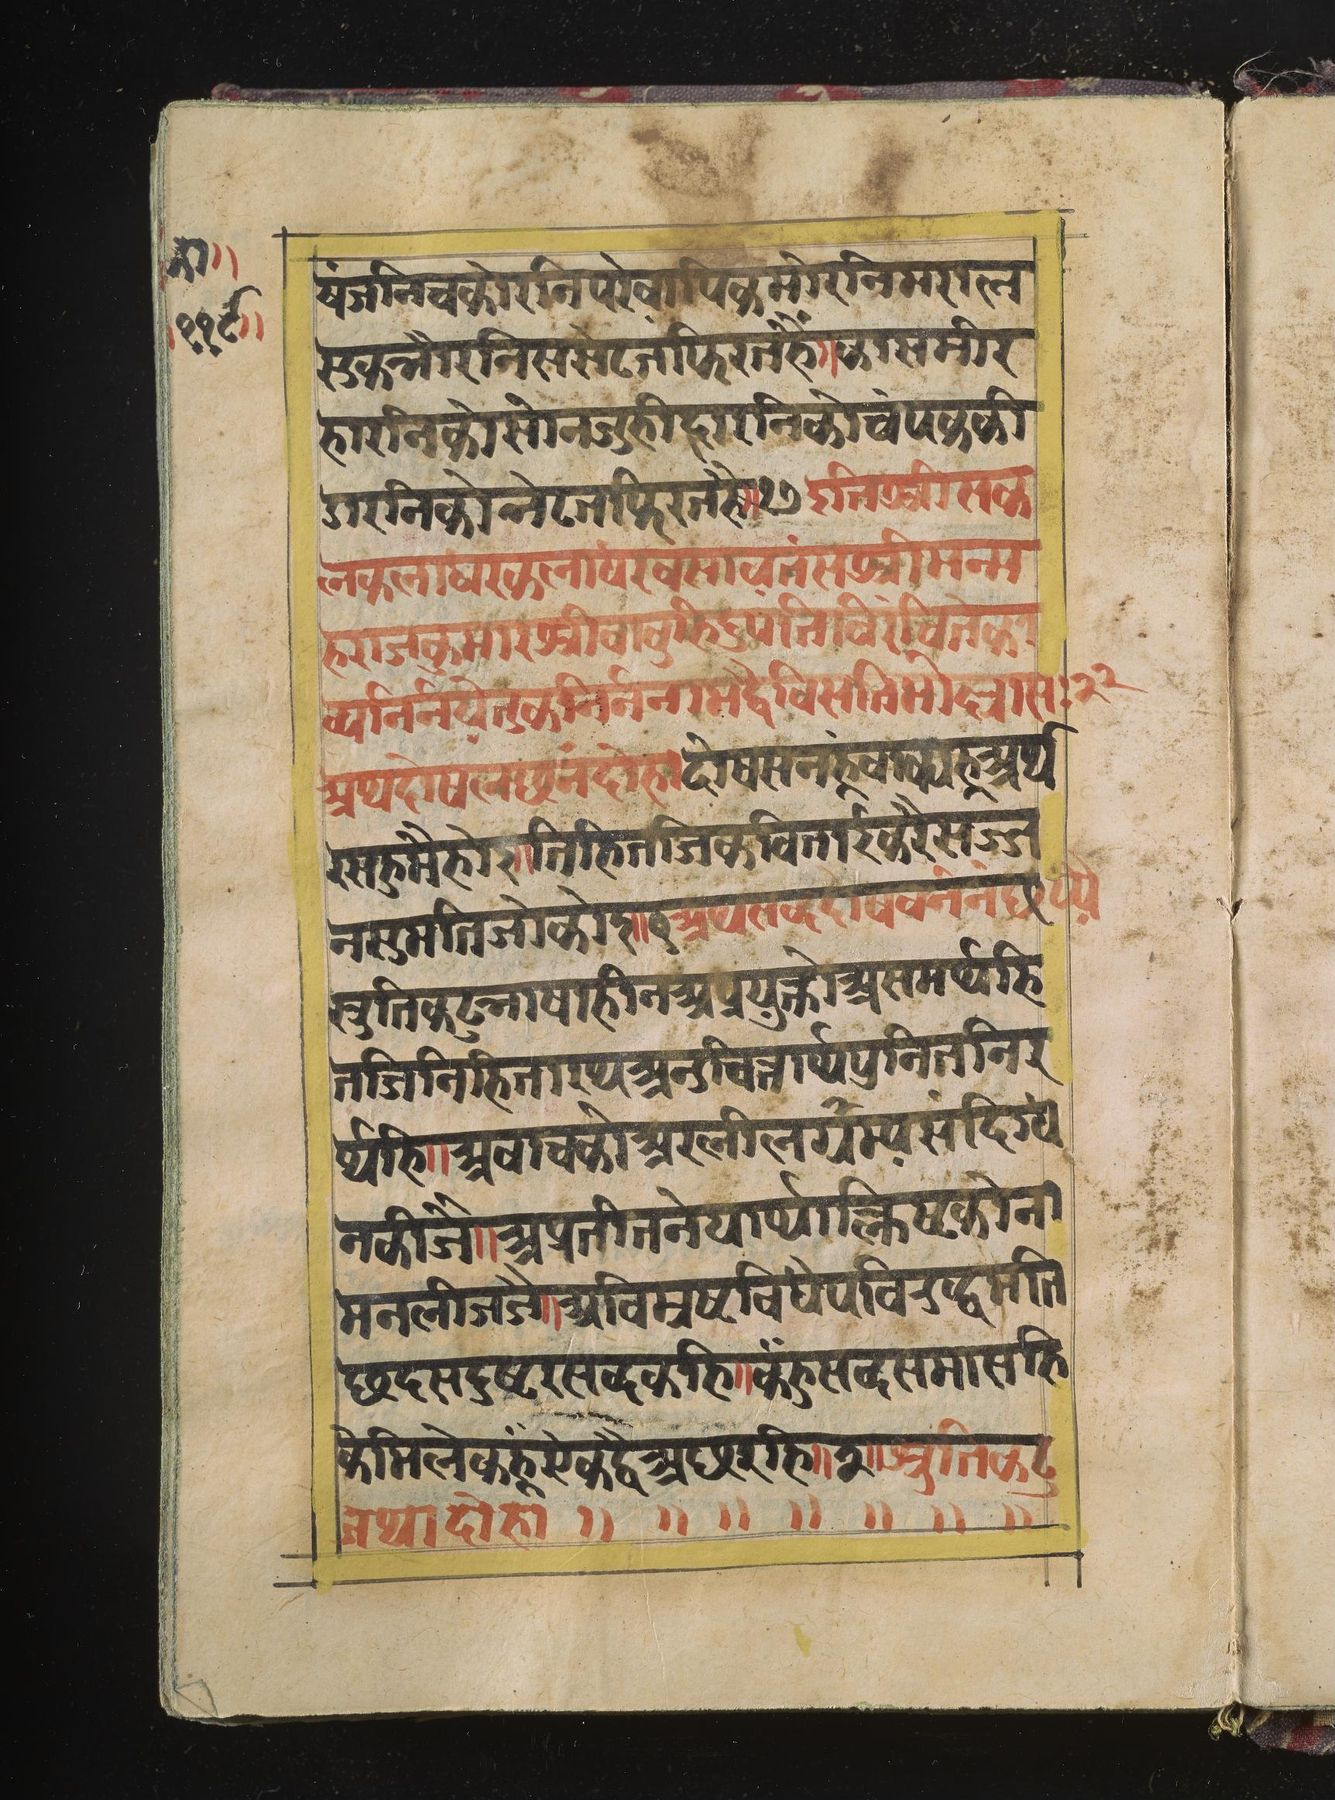 का॥
॥११८॥
षंजनिचकोरनिपरेवापिकमोरनिमराल
सुकभौरनिसमेटतफिरतहैं॥कासमीर
हारनिकोसोनजुहीझारनिकोचंपककी
डारनिकोभेटतफिरतहै॥१७इतिश्रीसक
लकलाधरकलाधरवंसावतंसश्रीमन्म
हाराजकुमारश्रीबाबुहिंदूपतिविरंचितेका
व्यनिर्नयेतुकनिर्ननामद्वैविसतिमो २२
अथदोषलछनंदोहा॥दोषसबदहूवाक्यहूअर्थ
रसहुमैहोइ॥तिहितजिकविताईकरैसज्ज
नसुमतिजोकोइ॥१अथसब्ददोषवर्ननंछप्पै
स्रुतिकटुभाषाहीनअप्रयुक्तोअसमर्थहि
तजिनिहितारथअनुचितार्थपुनितनिर
र्थहि॥अवाचकोअस्लीलग्राम्यसंदिग्ध
नकीजै॥अप्रतीतनेयार्थक्लिष्टकोना
मनलीजजै॥अविमृष्टविधेयविरुद्धमति
छदसदुष्टरसब्दकहि॥कंहुसब्दसमासहि
केमिलेकहूंएकद्वैअछरहि॥२॥श्रुतिकटु
जथादोहा॥ ॥ ॥ ॥ ॥ ॥ ॥